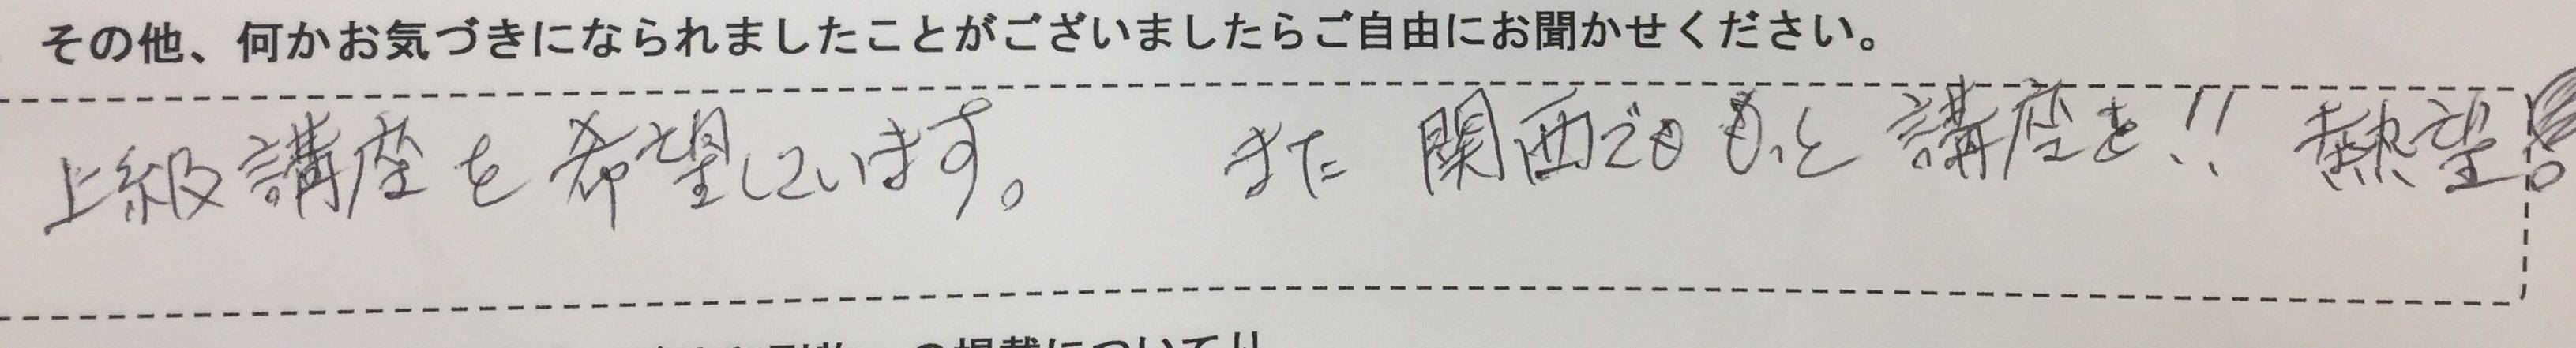 その他、何かお気づきになられましたことがございましたらご自由にお聞かせください。
上級講座を希望しています。 また 関西でももっと講座を!! 熱望!
の掲載について